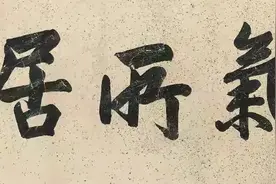 氣所居